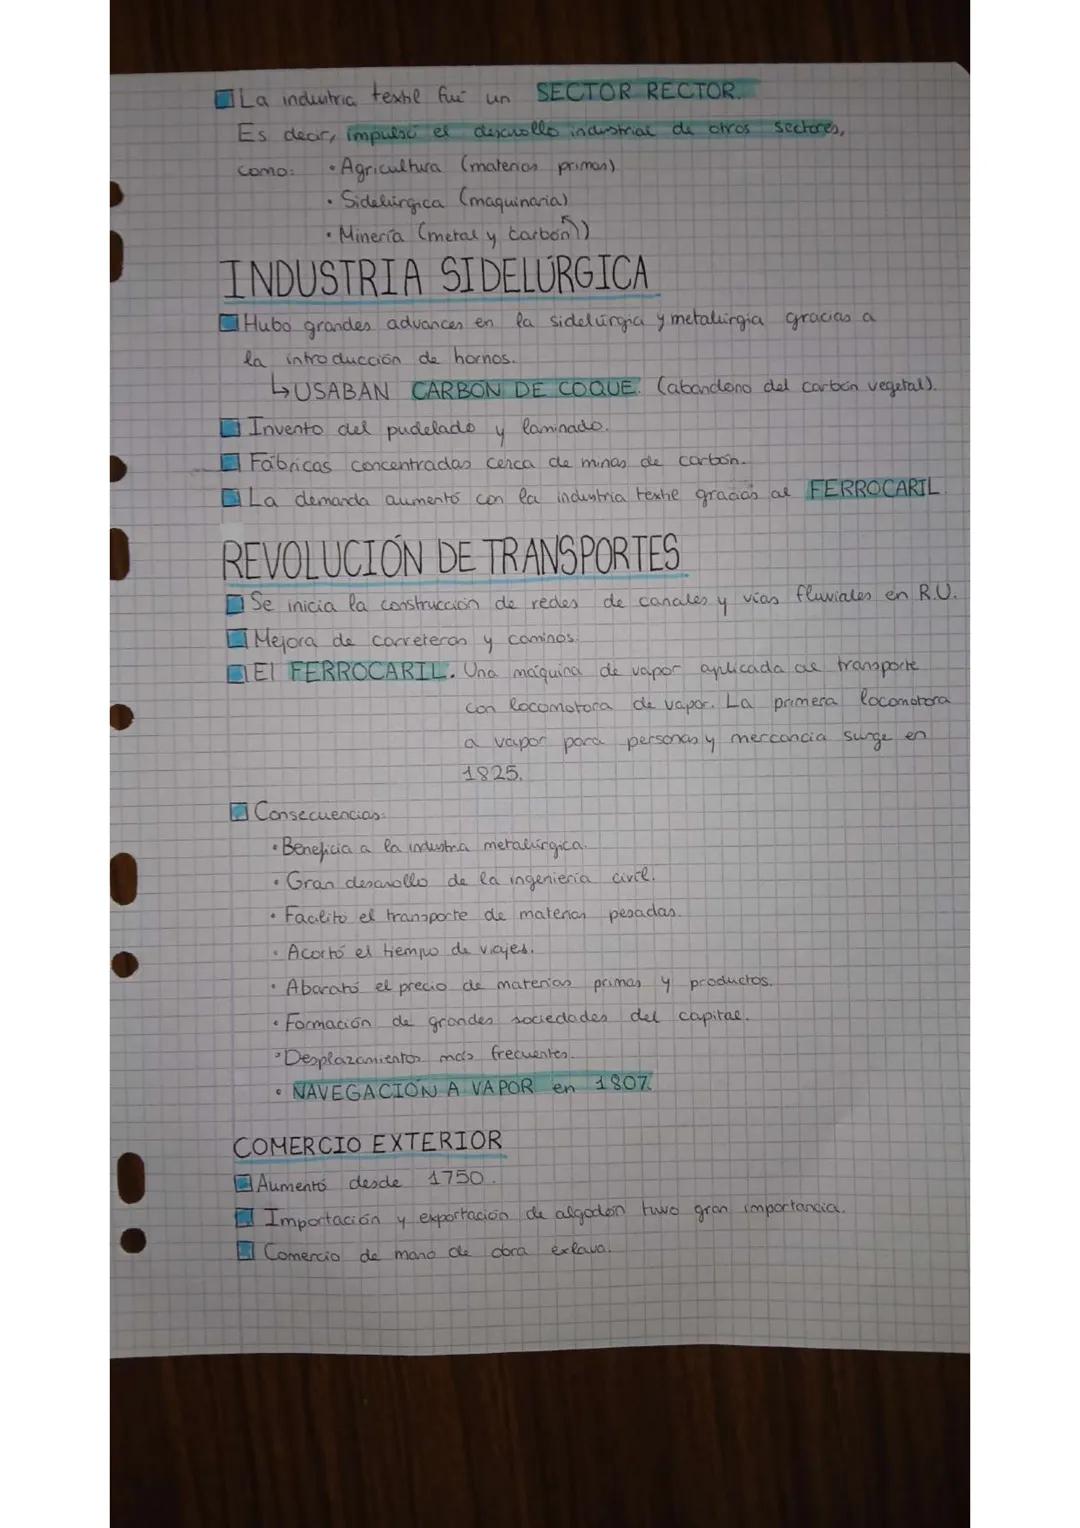 La industria textil fué un SECTOR RECTOR.
Es decir, impulsó el desarrollo industrial de otros sectores,
como: • Agricultura (materias primas)
• Sidelúrgica (maquinaria)
• Minería (metal y carbón))
INDUSTRIA SIDELÚRGICA
Hubo grandes avances en la sidelúrgia y metalúrgia gracias a
la introducción de hornos.
↳ USABAN CARBON DE COQUE. (abandono del carbón vegetal).
Invento del pudelado y laminado.
Fábricas concentradas cerca de minas de carbón.
La demanda aumentó con la industria textil gracias al FERROCARIL
REVOLUCIÓN DE TRANSPORTES
Se inicia la construcción de redes de canales y vías fluviales en R.U.
Mejora de carreteras y caminos.
El FERROCARIL. Una máquina de vapor aplicada al transporte
con locomotora de vapor. La primera locomotora
a vapor para personas y mercancia surge en
1825.
Consecuencias:
• Beneficia a la industria metalúrgica.
• Gran desarrollo de la ingeniería civil.
• Facilitó el transporte de materias pesadas.
• Acortó el tiempo de viajes.
• Abarató el precio de materias primas y productos.
• Formación de grandes sociedades del capital.
• Desplazamientos más frecuentes.
• NAVEGACIÓN A VAPOR en 1807.
COMERCIO EXTERIOR
Aumentó desde 1750.
Importación y exportación de algodón tuvo gran importancia.
Comercio de mano de obra exlava.